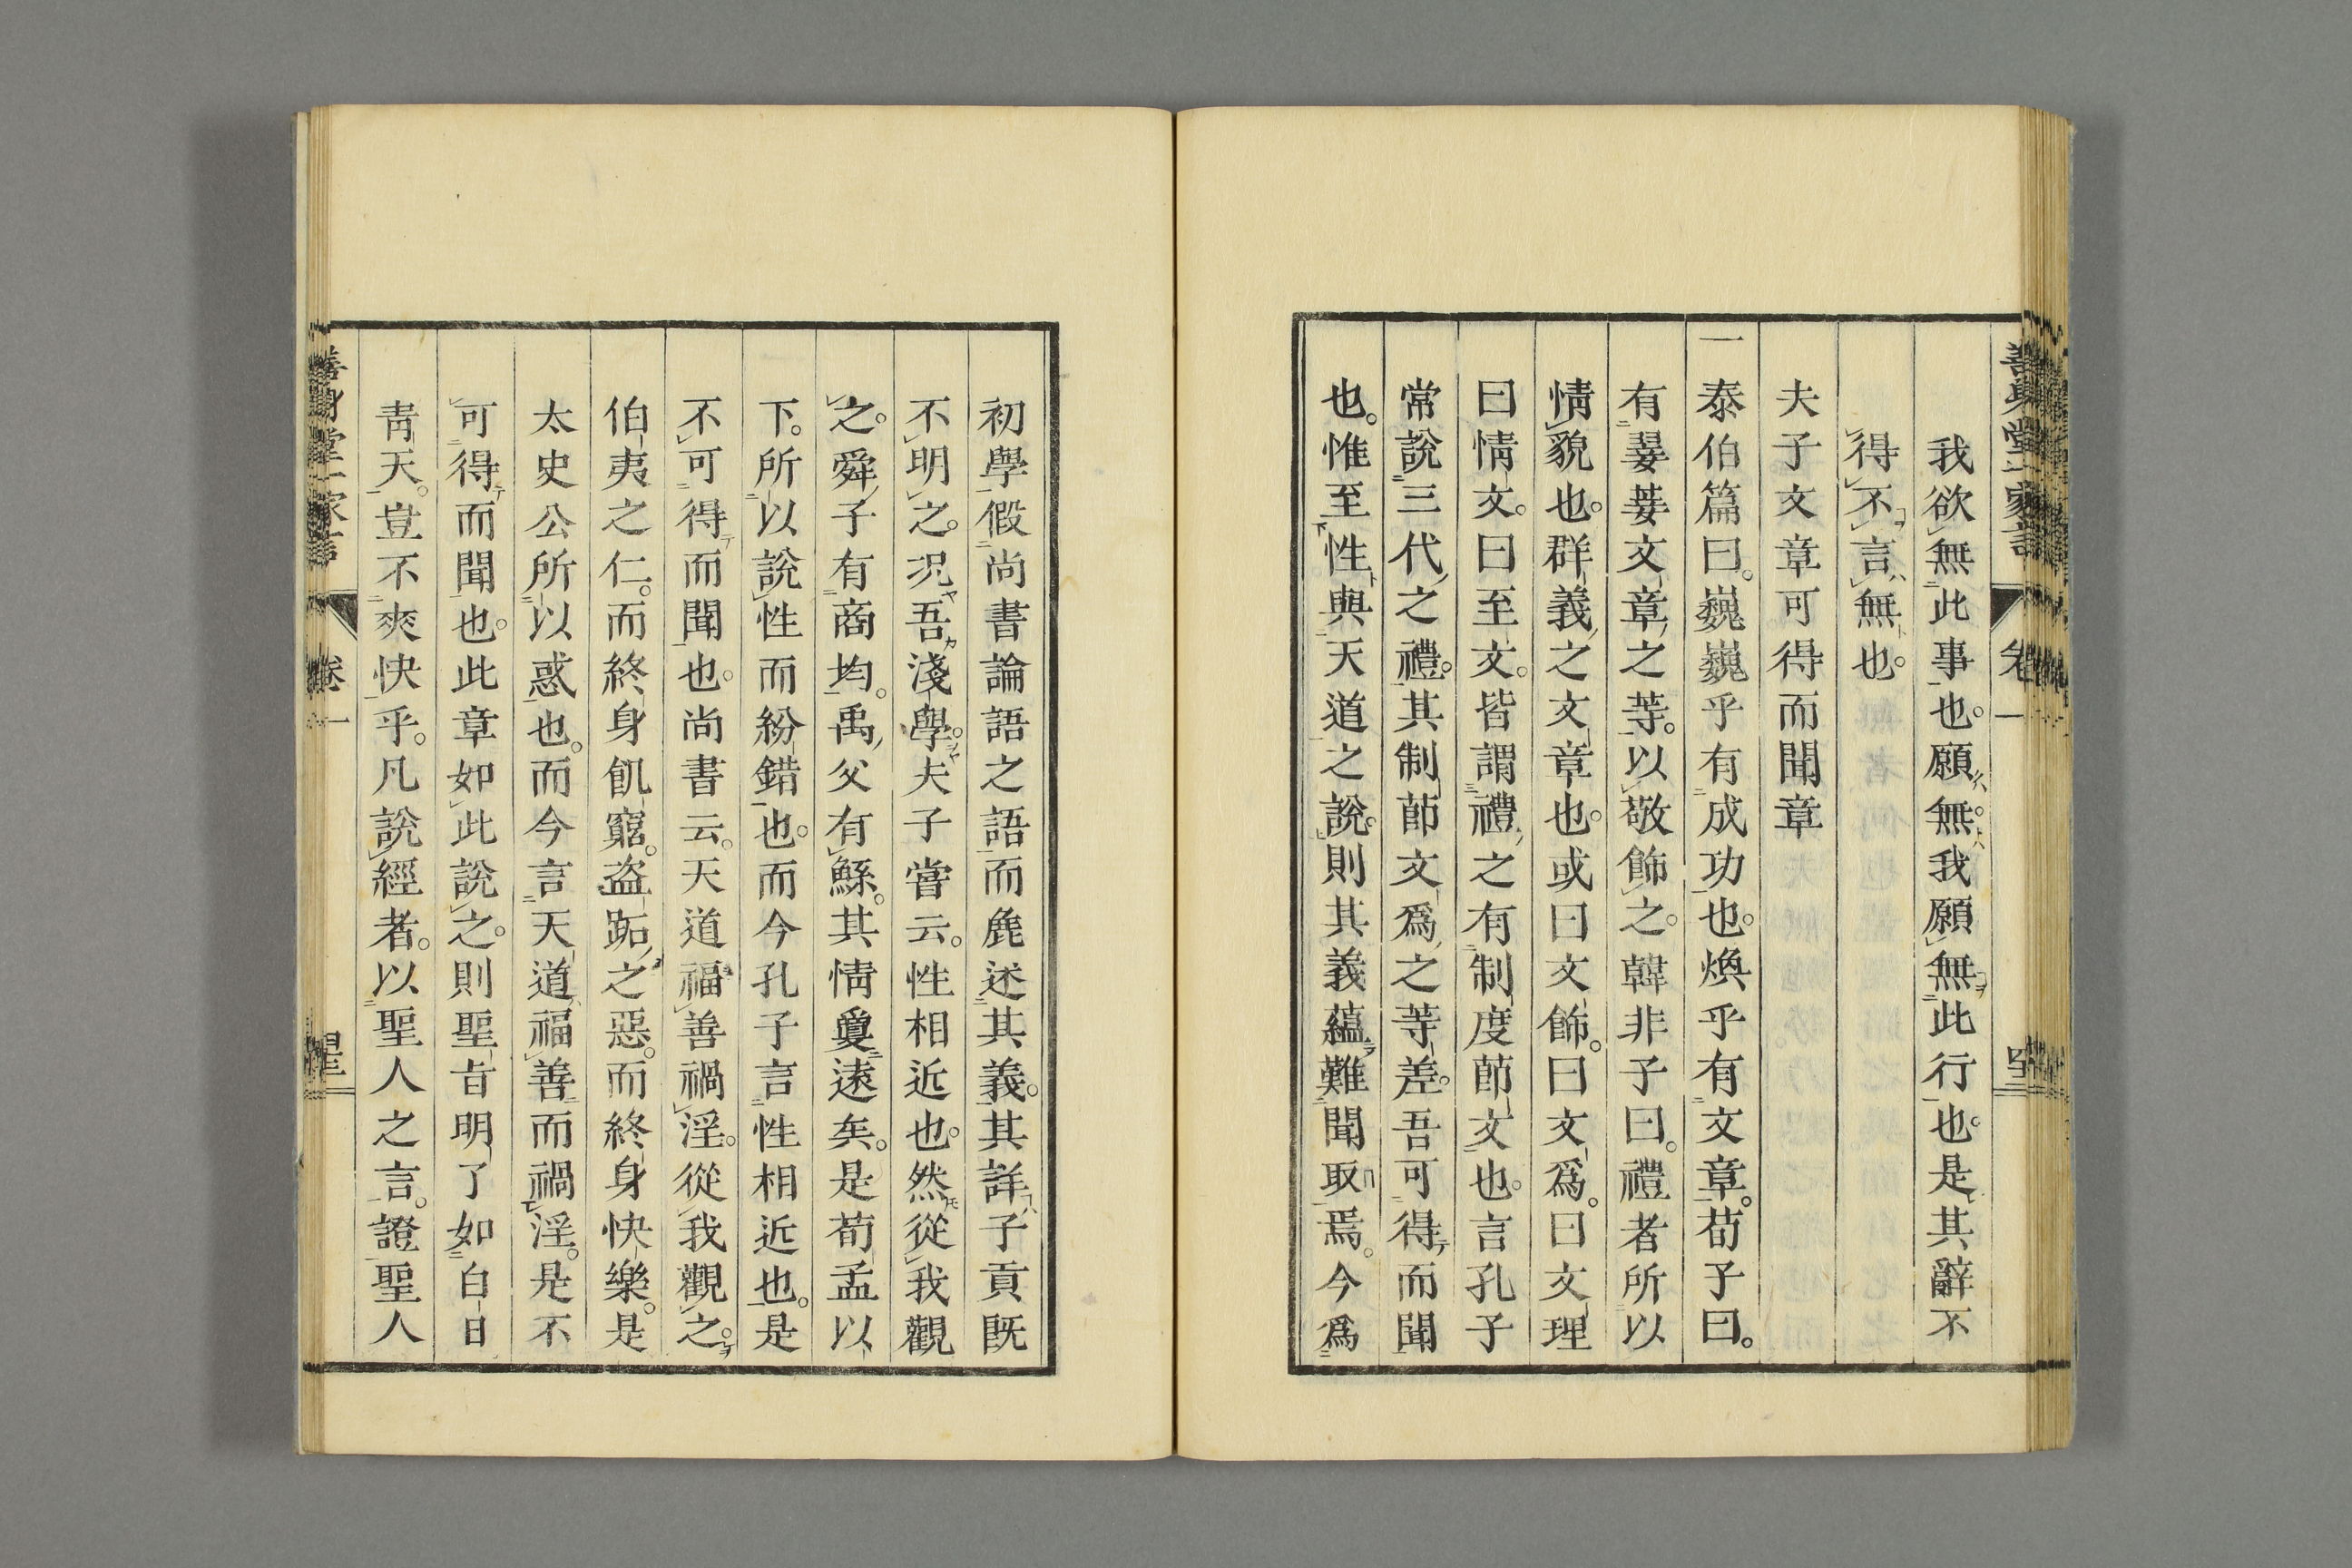 我欲無此事也。願無。我願無此行也。是其辭不
得不言無也。
夫子文章可得而聞章
一泰伯篇曰。巍巍乎有成功也。煥乎有文章。荀子曰。
有翣菨文章之等。以敬飾之。韓非子曰。禮者所以
情貌也。群義之文章也。或曰文飾。曰文爲。曰文理
曰情文。曰至文。皆謂禮之有制度節文也。言孔子
常說三代之禮。其制節文爲之等差。吾可得而聞
也。惟至性與天道之說。則其義蘊難聞取焉。今爲
初學假尚書論語之語而麁述其義。其詳子貢既
不明之。況吾淺學。夫子嘗云。性相近也。然從我觀
之。舜子有商均。禹父有鯀。其情敻遠矣。是荀孟以
下。所以說性而紛錯也。而今孔子言性相近也。是
不可得而聞也。尚書云。天道福善禍淫。從我觀之。
伯夷之仁。而終身飢窮。盗跖之惡。而終身快樂。是
太史公所以惑也。而今言天道福善而禍淫。是不
可得而聞也。此章如此說之。則聖旨明了如白日
靑天。豈不爽快乎。凡說經者。以聖人之言。證聖人
善身堂一家言
卷一